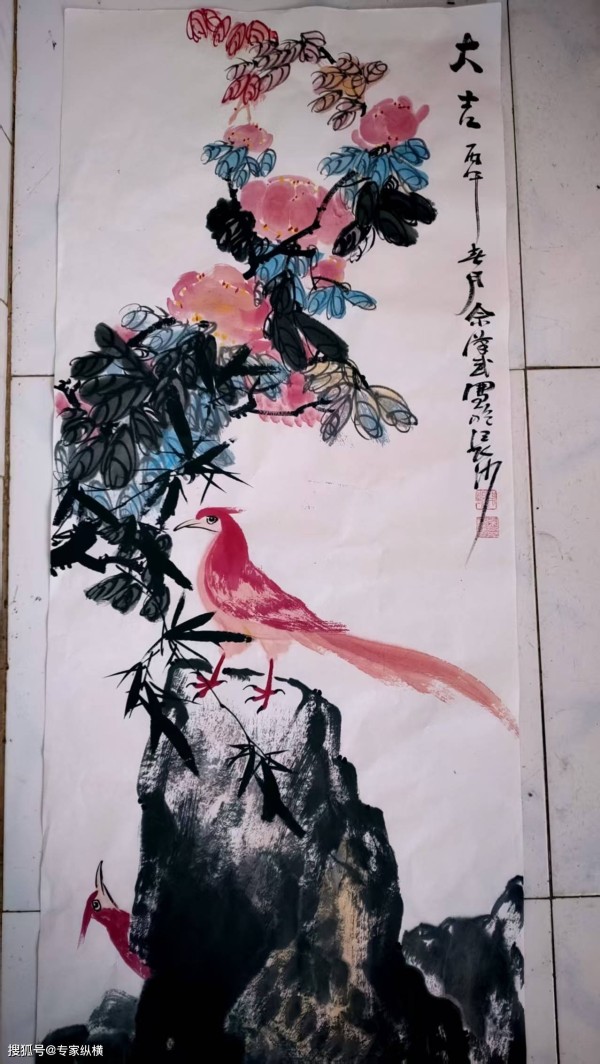 大吉丙午春月余漢武寫於長沙
搜狐号@专家纵横